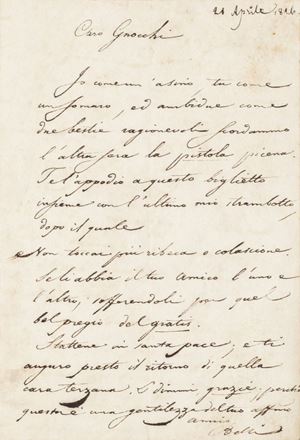 21 Aprile 1846
Caro Gnocchi
Io come un'asino, tu come
un somaro, ed ambidue come
due bestie ragionevoli scordammo
l'altra sera la pistola picena.
Te l'appodio a questo biglietto
insieme con l'ultimo mio strambotto,
dopo il quale
Non toccai più ribeca o colascione.
Se li abbia il tuo amico l'uno e
l'altro, sofferendoli per quel
bel pregio del gratis.
Stattene in santa pace, e ti
auguro presto il ritorno di quella
cara terzana. E dimmi grazie perchè
questa è una gentilezza del tuo affmo
amico
G. Belli